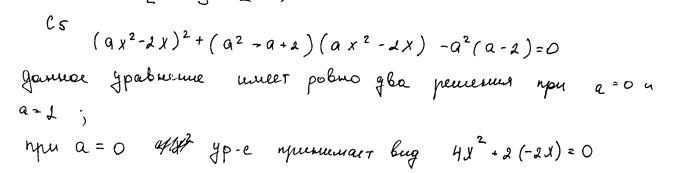 C5
(ax²-2x)² + (a² - a + 2)(ax² - 2x) - a²(a-2)=0
данное уравнение имеет ровно два решения при a=0 и
a=2;
при a=0 ур-е принимает вид 4x² + 2(-2x) = 0